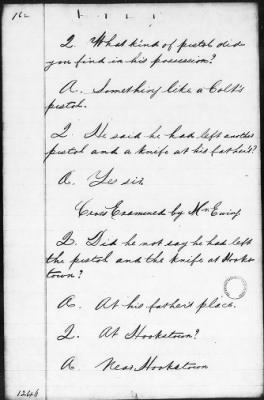 162
Q. What kind of pistol did
you find in his possession?
A. Something like a Colt's
pistol.
Q. He said he had left another
pistol and a knife at his father's?
A. Yes sir.
Cross Examined by Mr Ewing
Q. Did he not say he had left
the pistol and the knife at Hooks-
town?
A. At his father's place.
Q. At Hookstown?
A. Near Hookstown